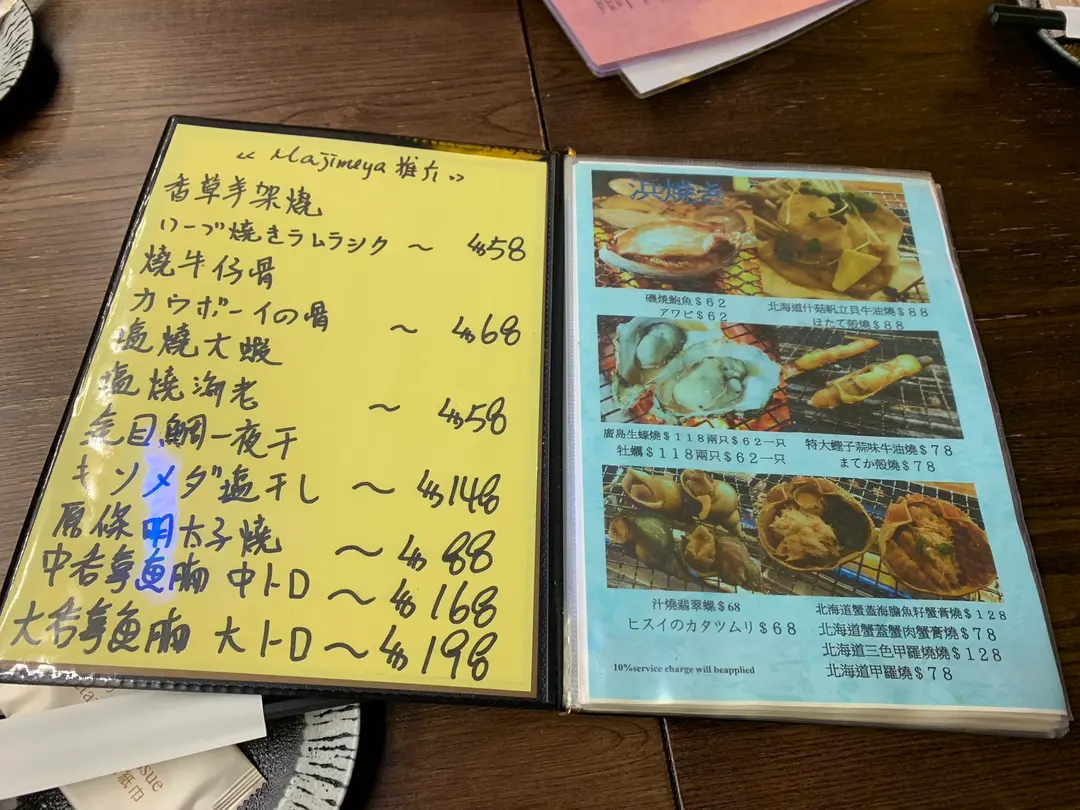 «Majimeya 推介»
香草羊架燒
ローブ焼きラムラシク ～ $58
燒牛仔骨
カウボーイの骨 ～ $68
塩燒大蝦
塩燒海老 ～ $58
金目鯛一夜干
キソメダ塩干し ～ $148
原條明太子燒 ～ $88
中吞拿魚腩 中トロ ～ $168
大吞拿魚腩 大トロ ～ $198
浜焼き
磯燒鮑魚$62
アワビ$62
北海道什菇帆立貝牛油燒$88
ほたて殻燒$88
廣島生蠔燒$118兩只$62一只
牡蠣$118兩只$62一只
特大蟶子蒜味牛油燒$78
まてか殻燒$78
汁燒翡翠螺$68
ヒスイのカタツムリ$68
北海道蟹盖海膽魚籽蟹膏燒$128
北海道蟹蓋蟹肉蟹膏燒$78
北海道三色甲羅燒燒$128
北海道甲羅燒$78
10%service charge will beapplied
ssue
紙巾